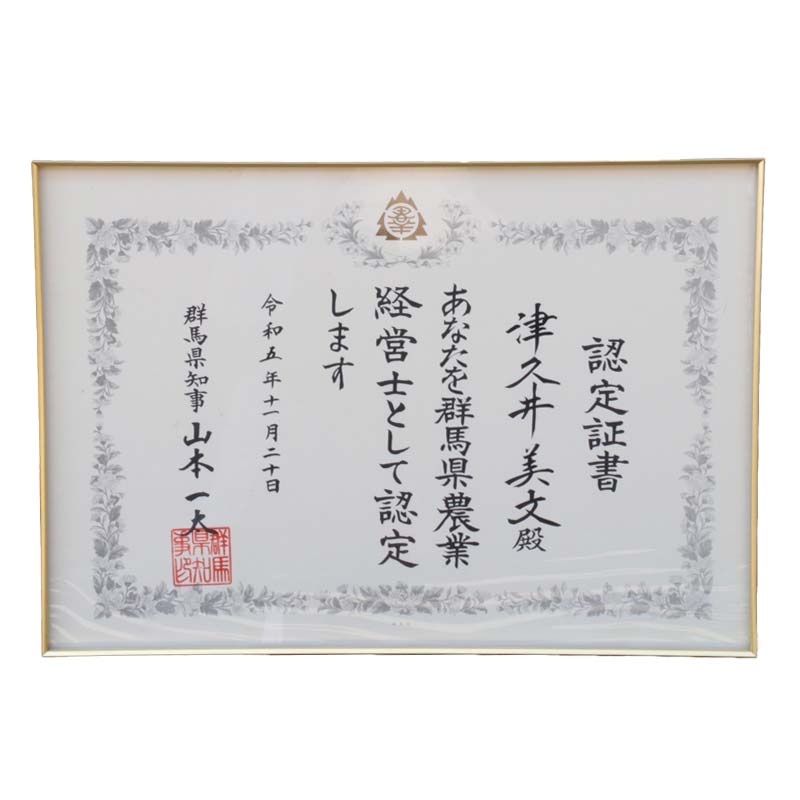 認定証書
津久井美文殿
あなたを群馬県農業
経営士として認定
します
令和五年十一月二十日
群馬県知事 山本一太
群馬
県知
事印